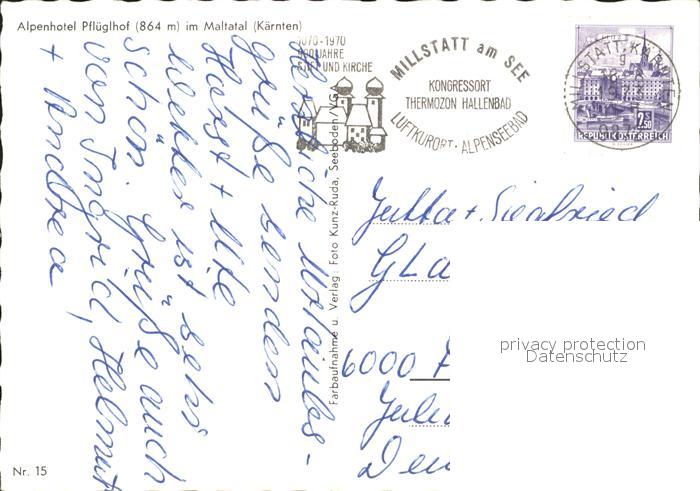 Alpenhotel Pflüglhof (864 m) im Maltatal (Kärnten)
1070-1970
900 JAHRE
STIFT UND KIRCHE
MILLSTATT am SEE
KONGRESSORT
THERMOZON HALLENBAD
LUFTKURORT · ALPENSEEBAD
MILLSTATT, KÄRNTEN
2 S 50
REPUBLIK ÖSTERREICH
Herzliche Urlaubs-
grüße senden
Horst + Ute
Wetter ist sehr
schön. Grüße auch
von Ingrid, Helmut
+ Andrea
Farbaufnahme u. Verlag: Foto Kunz-Ruda, Seeboden/
Jutta + Siegfried
6000
privacy protection
Datenschutz
Nr. 15